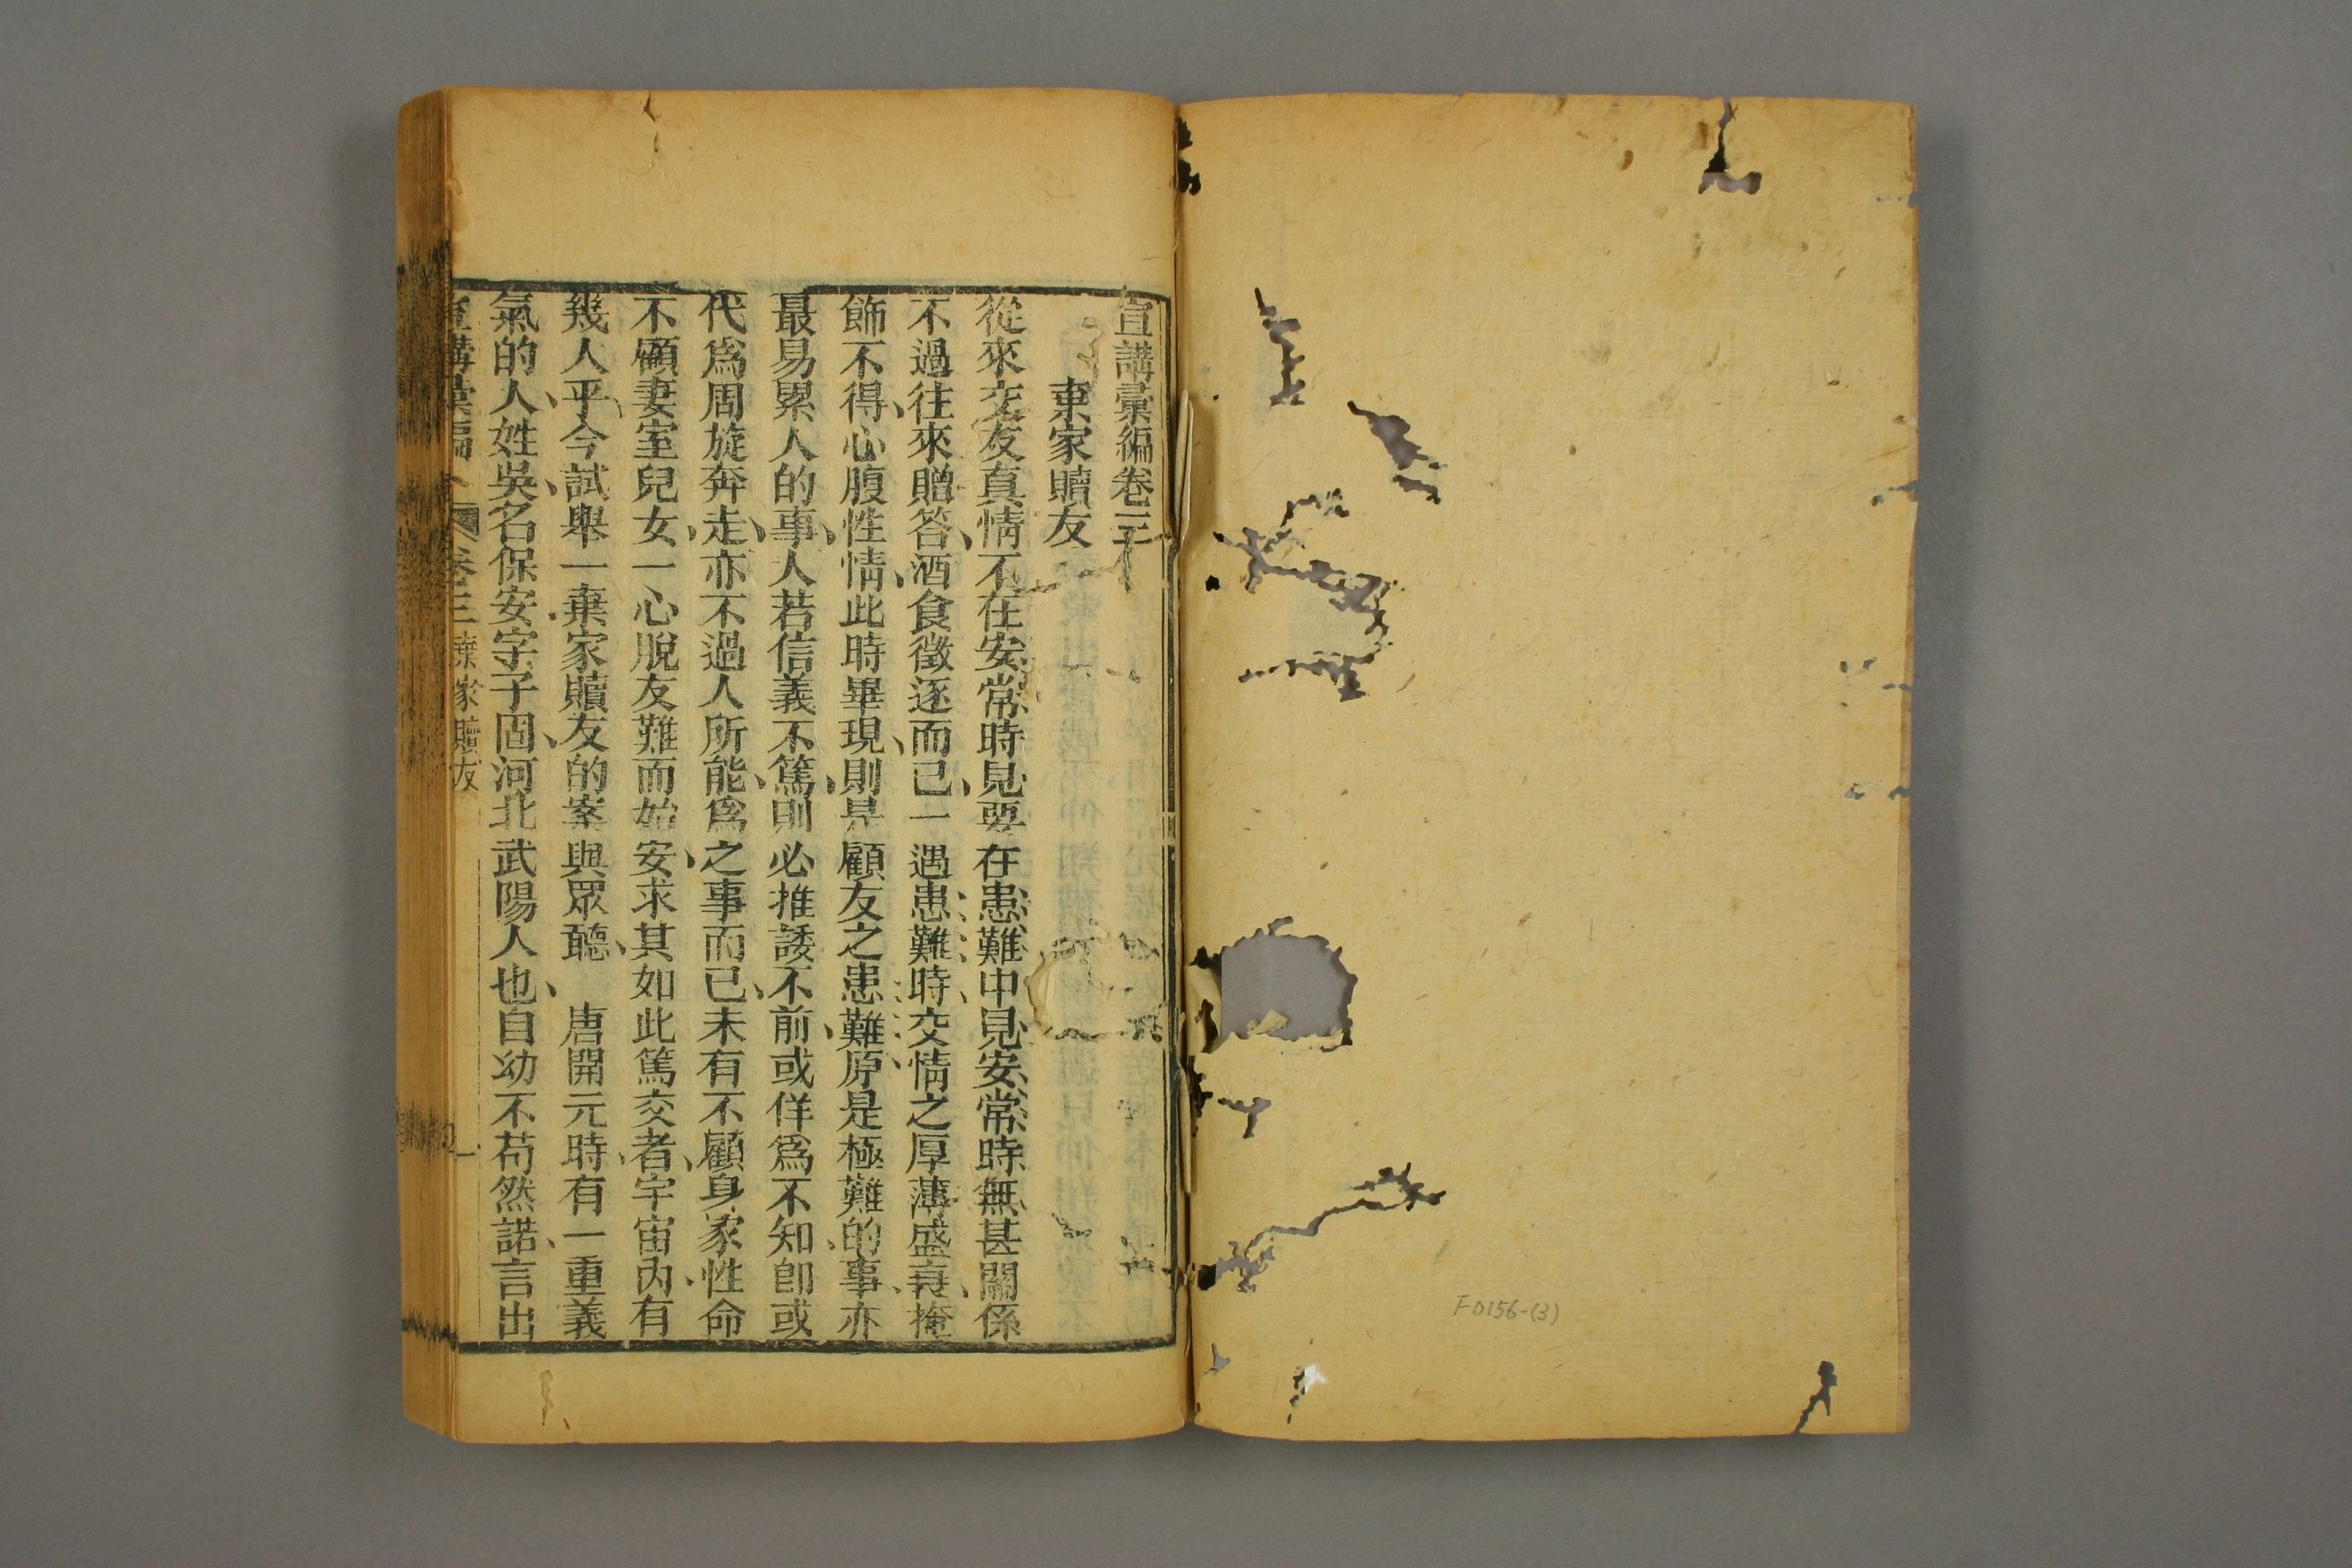 宣講彙編卷三
棄家贖友
從來交友真情不在安常時見要在患難中見安常時無甚關係
不過往來贈答酒食徵逐而已一遇患難時交情之厚薄盛衰掩
飾不得心腹性情此時畢現則是顧友之患難原是極難的事亦
最易累人的事人若信義不篤則必推諉不前或佯爲不知卽或
代爲周旋奔走亦不過人所能爲之事而已未有不顧身家性命
不顧妻室兒女一心脫友難而始安求其如此篤交者宇宙內有
幾人乎今試舉一棄家贖友的案與眾聽 唐開元時有一重義
氣的人姓吳名保安字子固河北武陽人也自幼不苟然諾言出
宣講彙編 卷三 棄家贖友 一
F0156-(3)